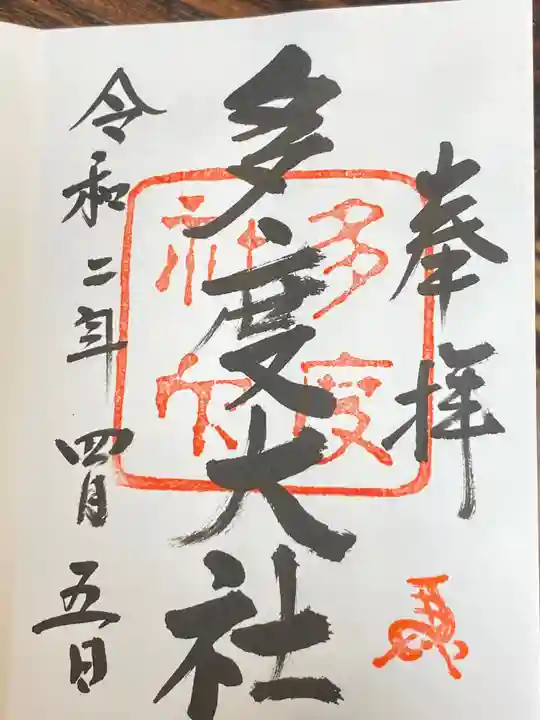 奉拝
多度大社
多度
神印
令和二年四月五日